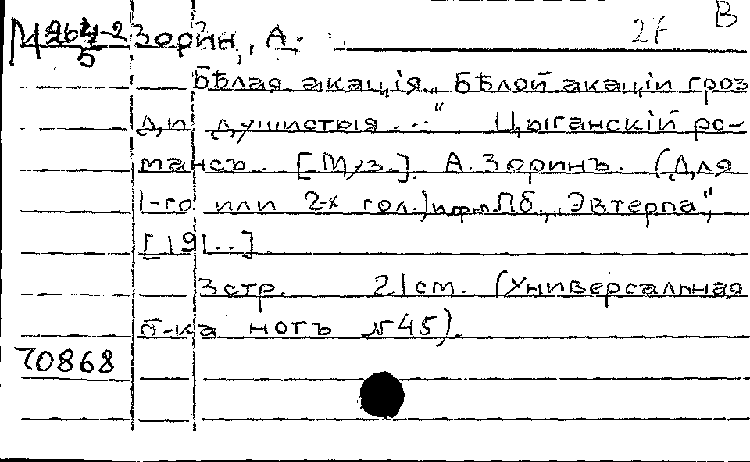 В
2f
М 264-2 Зорин, А.
5
Бѣлая акація. „Бѣлой акаціи гроз
ди душистыя ..." Цыганскій ро-
мансъ. [Муз.] А. Зоринъ. (Для
1-го или 2-х гол.) и фп. Пб., „Эвтерпа",
[191..]
3 стр. 21 см. (Универсальная
б-ка нотъ №45).
70868